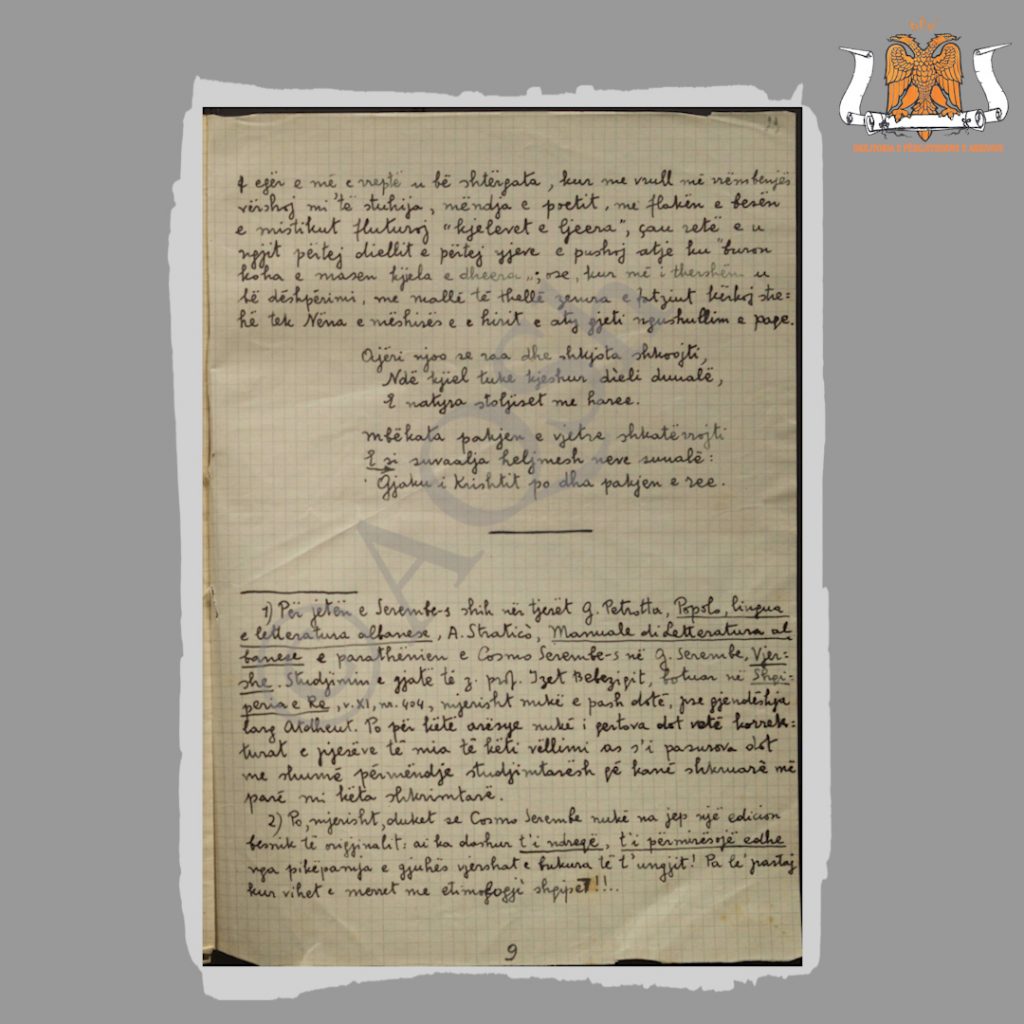 DREJTORIA E PËRGJITHSHME E ARKIVAVE
egër e më e vreptë u bë shtërgata, kur me vrull më rrëmbenjës
vërshoj mi'të stuhija, mëndja e poetit, me flakën e besën
e mistikut fluturoj "kjelevet e ljeera", çau retë e u
ngjit përtej diellit e përtej yjeve e pushoj atje ku "buron
koha e masen kjela e dheera"; ose, kur më i thershëm u
bë dëshpërimi, me mallë të thellë zemra e fatziut kërkoj stre-
hë tek Nëna e mëshirës e e hirit e aty gjeti ngushullim e paqe.
Ajëri njoo se raa dhe shkjota shkoojti,
Ndë kjiel tuke kjeshur dieli dunalë,
E natyra stoljiset me haree.
Mbëkata pakjen e vjetre shkatërrojti
E si suvaalja heljmesh neve sunalë:
Gjaku i Krishtit po dha pakjen e ree.
1) Për jetën e Serembe-s shih nër tjerët G. Petrotta, Popolo, lingua
e letteratura albanese, A. Straticò, Manuale di Letteratura al
banese e parathënien e Cosmo Serembe-s në G. Serembe, Vjer-
she. Studjimin e gjatë të z. prof. Izet Bebeziqit, botuar në Shqi-
përia e Re, v. XI, nr. 404, mjerisht nukë e pash dotë, pse gjendëshja
larg Atdheut. Po për këtë arësye nukë i qertova dot vetë korrek-
turat e pjesëve të mia të këti vëllimi as s'i pasurova dot
me shumë përmëndje studjimtarësh që kanë shkruarë më
parë mi këta shkrimtarë.
2) Po, mjerisht, duket se Cosmo Serembe nukë na jep një edicion
besnik të origjinalit: ai ka dashur t'i ndreqë, t'i përmirësojë edhe
nga pikëpamja e gjuhës vjershat e bukura të t'ungjit! Pa le' pastaj
kur vihet e merret me etimologji shqipe!!!..
9